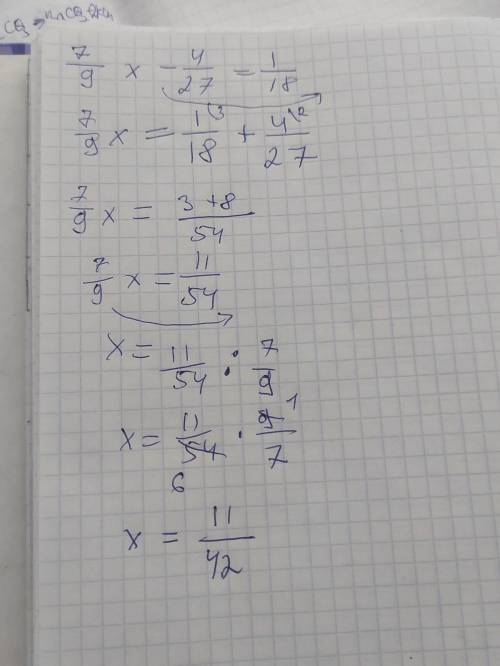 7/9 x - 4/27 = 1/18
7/9 x = 1\3/18 + 4\2/27
7/9 x = 3+8/54
7/9 x = 11/54
x = 11/54 : 7/9
x = 11/54 6 · 9 1/7
x = 11/42